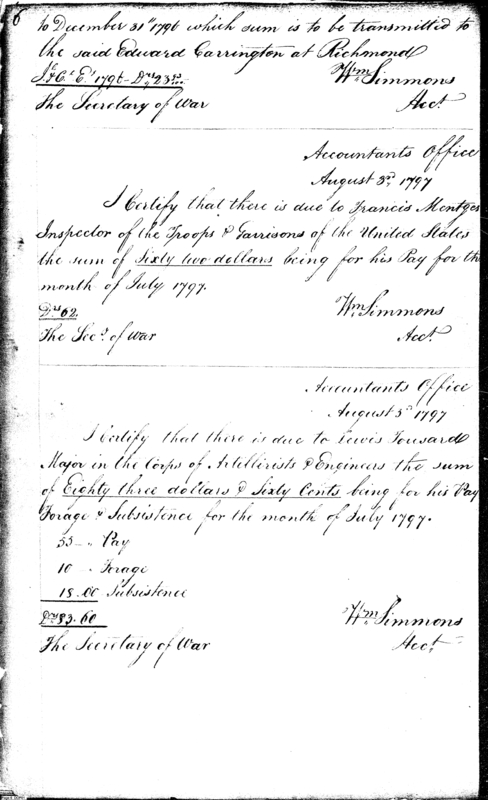 to December 31st 1796 which sum is to be transmitted to
the said Edward Carrington at Richmond
Wm Simmons
The Secretary of War
Acct.
Accountants Office
August 3d, 1797
I Certify that there is due to Francis Mentges
Inspector of the Troops & Garrisons of the United States
the sum of Sixty two dollars being for his Pay for the
month of July 1797.
Drs 62.
Wm Simmons
The Secy. of War
Acct.
Accountants Office
August 3d 1797
I Certify that there is due to Lewis Tousard
Major in the Corps of Artillirists & Engineers the sum
of Eighty three dollars & Sixty Cents being for his Pay
Forage & Subsistence for the month of July 1797.
55 - " Pay
10 - " Forage
18.60 Subsistence
Drs 83.60
Wm Simmons
The Secretary of War
Acct.